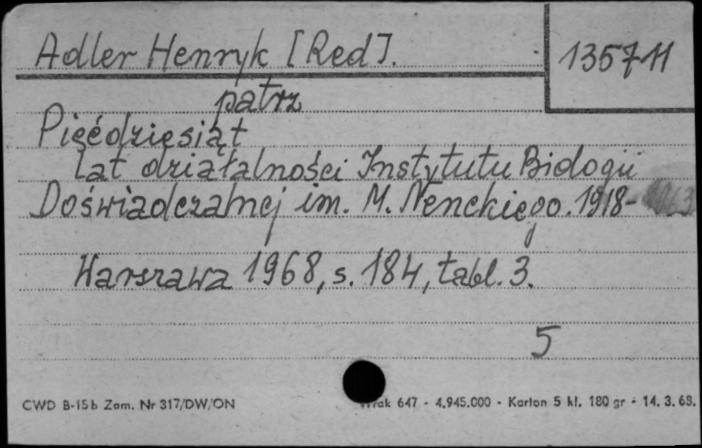 Adler Henryk [Red].
135711
patrz
Pięćdziesiąt
lat działalności Instytutu Biologii
Doświadczalnej im. M. Nenckiego. 1918-
Warszawa 1968, s. 184, tabl. 3.
5
CWD B-15b Zam. Nr 317/DW/ON
647 - 4.945.000 - Karton 5 kl. 180 gr - 14. 3. 63.